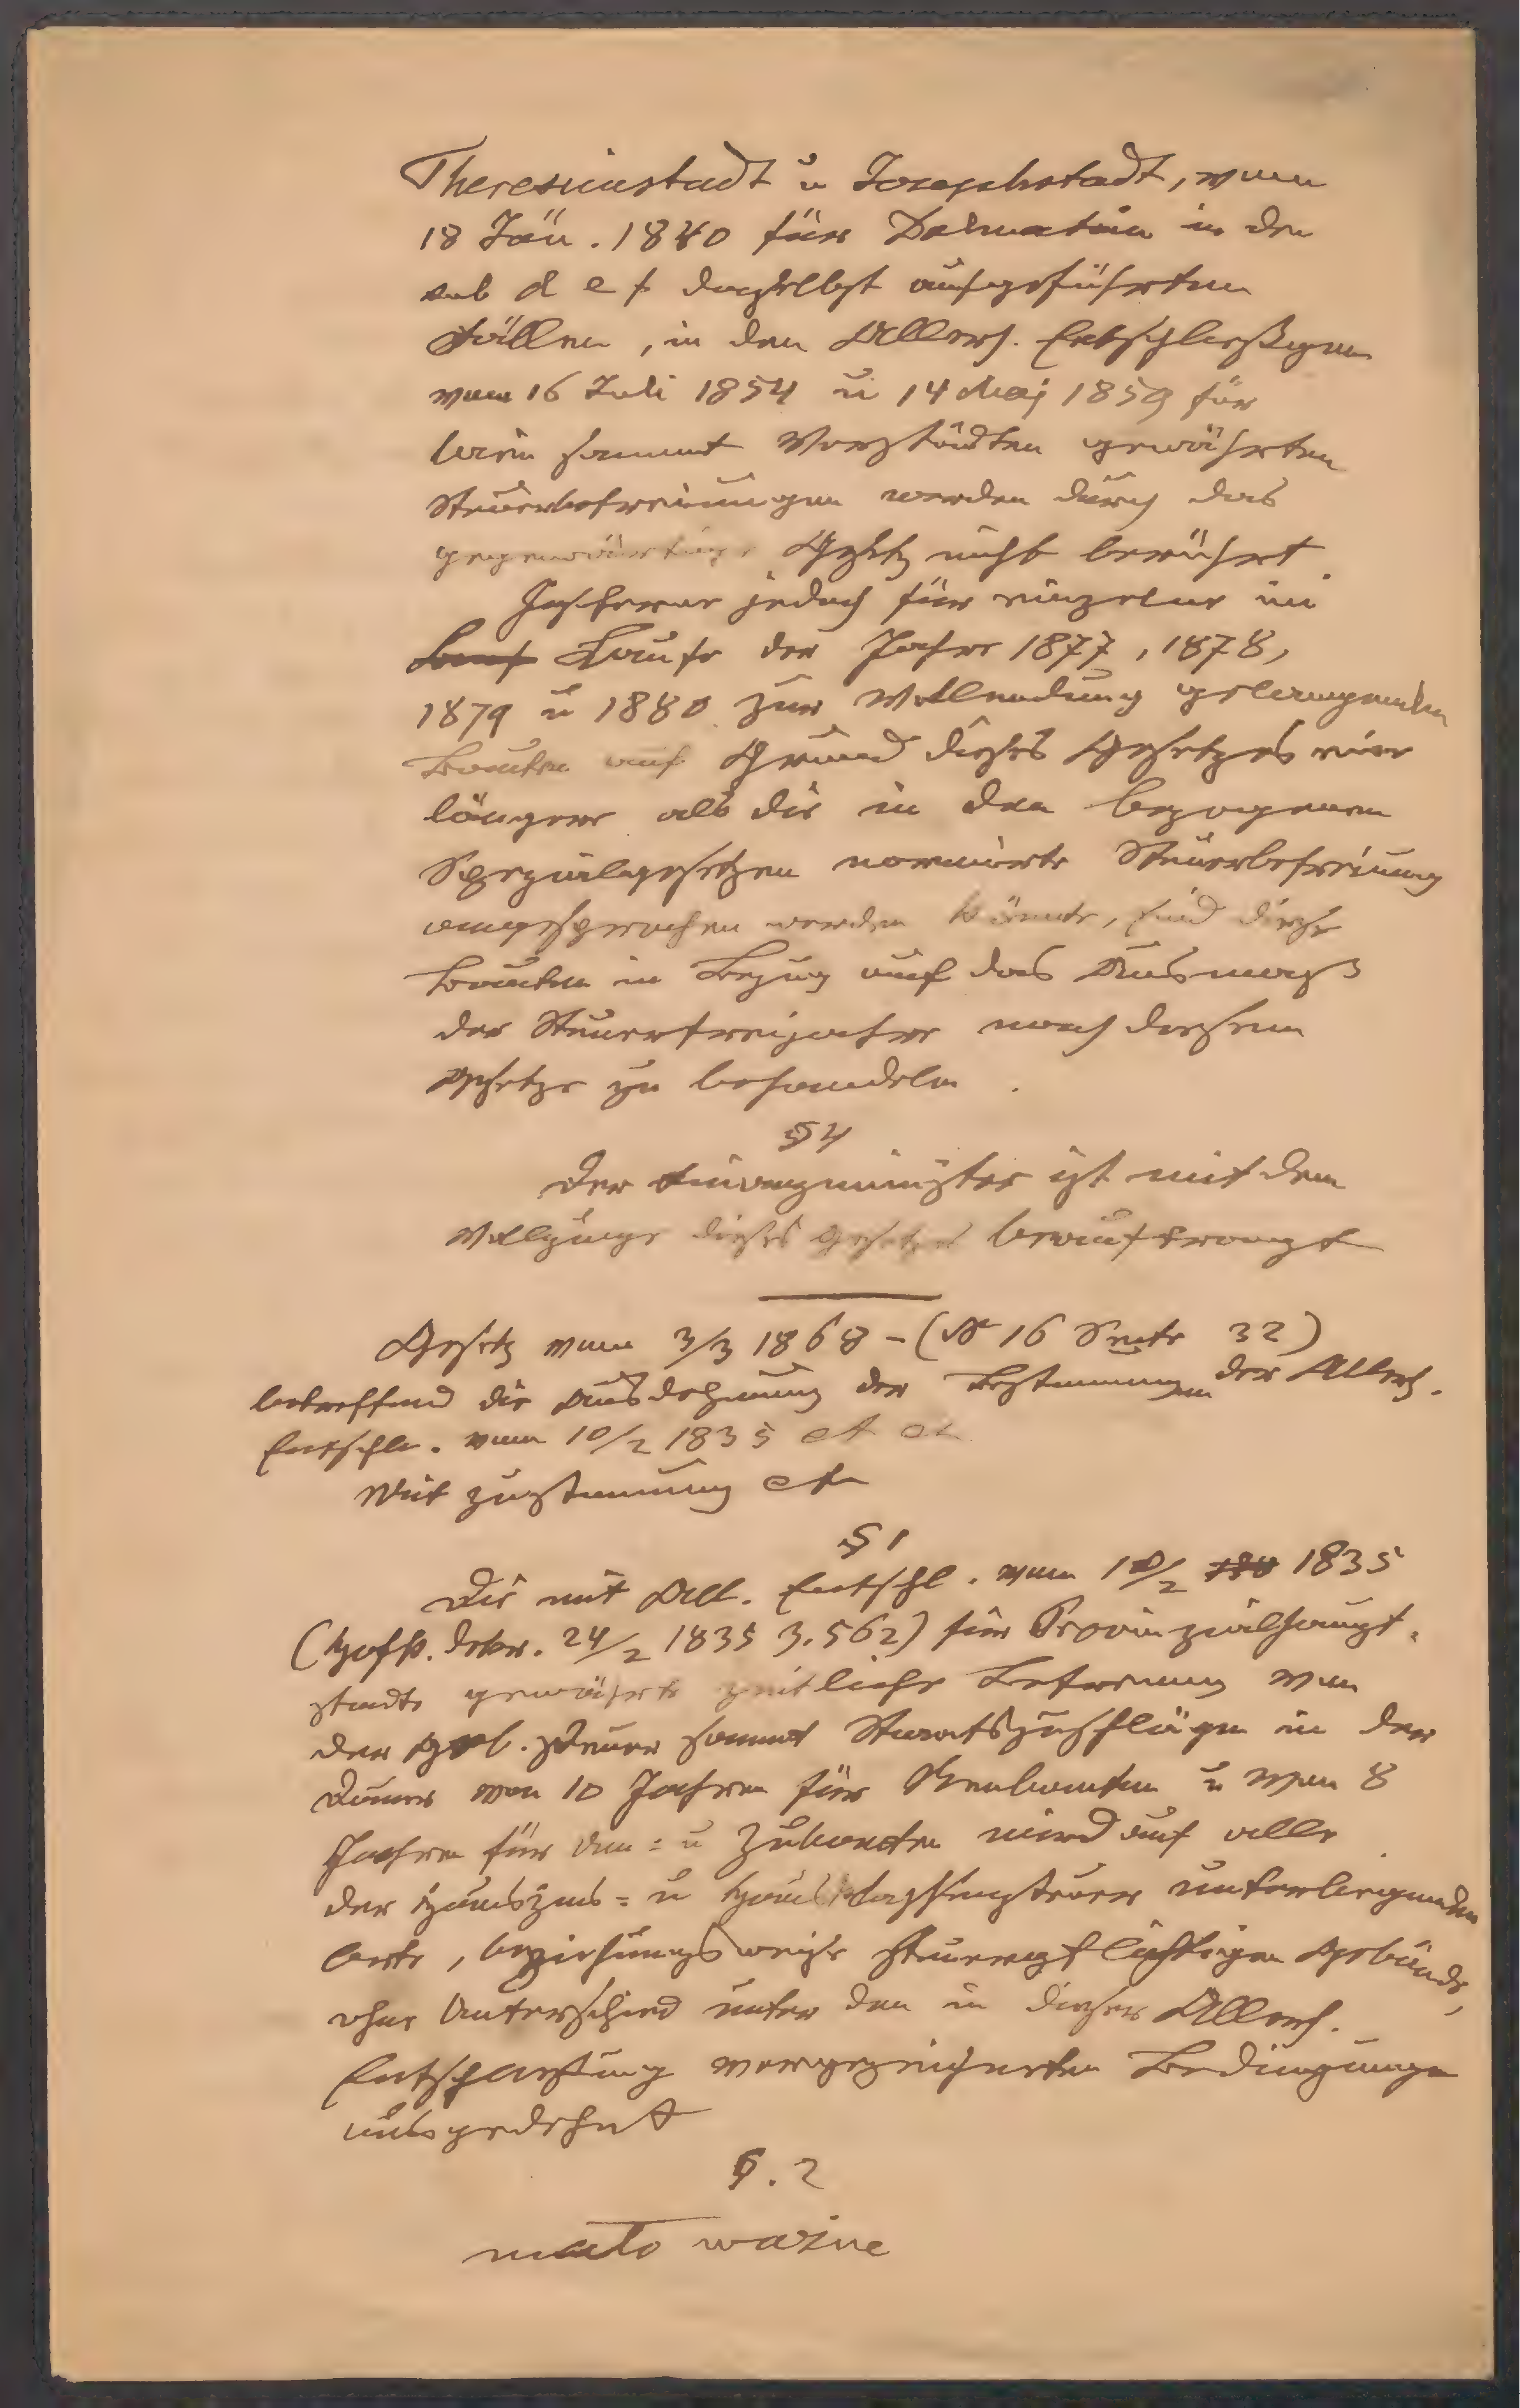 Theresienstadt u Josephstadt, vom
18 Jän. 1840 für Dalmatien in den
sub d e f daselbst aufgeführten
Fällen, in den Allerh. Entschließgen
vom 16 Juli 1854 u 14 Mai 1859 für
Wien sammt Vorstädten gewährten
Steuerbefreiungen werden durch das
gegenwärtige Gesetz nicht berührt.
Insoferne jedoch für einzelne im
Lauf Laufe der Jahre 1877, 1878,
1879 u 1880 zur Vollendung gelangenden
Bauten auf Grund dieses Gesetzes eine
längere als die in den bezogenen
Spezialgesetzen normierte Steuerbefreiung
angesprochen werden könnte, sind diese
Bauten in Bezug auf das Ausmaß
der Steuerfreijahre nach diesem
Gesetze zu behandeln.
§ 4
Der Finanzminister ist mit dem
Vollzuge dieses Gesetzes beauftragt
Gesetz vom 3/3 1868 – (N 16 Seite 32)
betreffend die Ausdehnung der Bestimmungen der Allerh.
Entschl. vom 10/2 1835 et
Mit Zustimmung et
§ 1
Die mit All. Entschl. vom 10/2 1835
(Hofk. Dekr. 24/2 1835 Z. 562) für Provinzialhaupt-
stadte gewährte zeitliche Befreiung von
der Geb. Steuer sammt Staatszuschlägen in der
Dauer von 10 Jahren für Neubauten u von 8
Jahren für Um- u Zubauten wird auf alle
der Hauszins- u Hausklassensteuer unterliegenden
Orte, beziehungsweise steuerpflichtigen Gebäude,
ohne Unterschied unter den in dieser Allerh.
Entschließung vorgezeichneten Bedingungen
ausgedehnt
§. 2